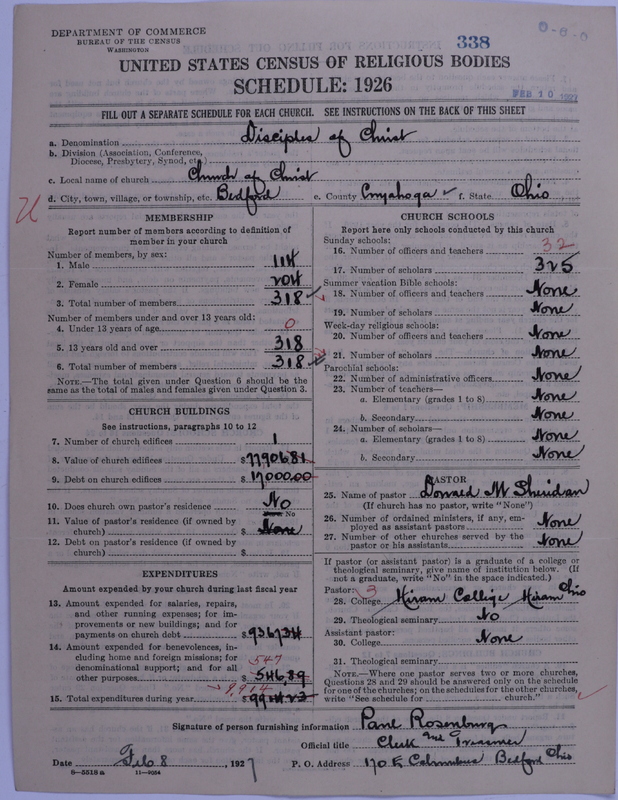 DEPARTMENT OF COMMERCE
BUREAU OF THE CENSUS
WASHINGTON
338
0-8-0
UNITED STATES CENSUS OF RELIGIOUS BODIES
SCHEDULE: 1926
FEB 10 1927
FILL OUT A SEPARATE SCHEDULE FOR EACH CHURCH. SEE INSTRUCTIONS ON THE BACK OF THIS SHEET
a. Denomination Disciples of Christ
b. Division (Association, Conference, Diocese, Presbytery, Synod, etc.)
c. Local name of church Church of Christ
d. City, town, village, or township, etc. Bedford e. County Cuyahoga f. State Ohio
U
MEMBERSHIP
Report number of members according to definition of
member in your church
Number of members, by sex:
1. Male 114
2. Female 204
3. Total number of members 318
Number of members under and over 13 years old:
4. Under 13 years of age 0
5. 13 years old and over 318
6. Total number of members 318
NOTE.—The total given under Question 6 should be the
same as the total of males and females given under Question 3.
CHURCH BUILDINGS
See instructions, paragraphs 10 to 12
7. Number of church edifices 1
8. Value of church edifices $77906.81
9. Debt on church edifices $17000.00
10. Does church own pastor's residence No
No
11. Value of pastor's residence (if owned by
church) $None
12. Debt on pastor's residence (if owned by
church) $
EXPENDITURES
Amount expended by your church during last fiscal year
13. Amount expended for salaries, repairs,
and other running expenses; for im-
provements or new buildings; and for
payments on church debt $9367.34
14. Amount expended for benevolences, in-
cluding home and foreign missions; for
denominational support; and for all
other purposes $546.89
547
15. Total expenditures during year $
9,914
CHURCH SCHOOLS
Report here only schools conducted by this church
Sunday schools:
16. Number of officers and teachers 32
17. Number of scholars 325
Summer vacation Bible schools:
18. Number of officers and teachers None
19. Number of scholars None
Week-day religious schools:
20. Number of officers and teachers None
21. Number of scholars None
Parochial schools:
22. Number of administrative officers None
23. Number of teachers—
a. Elementary (grades 1 to 8) None
b. Secondary None
24. Number of scholars—
a. Elementary (grades 1 to 8) None
b. Secondary None
PASTOR
25. Name of pastor Donald M Sheridan
(If church has no pastor, write "None")
26. Number of ordained ministers, if any, em-
ployed as assistant pastors None
27. Number of other churches served by the
pastor or his assistants None
If pastor (or assistant pastor) is a graduate of a college or
theological seminary, give name of institution below. (If
not a graduate, write "No" in the space indicated.)
Pastor: 3
28. College Hiram College Hiram Ohio
29. Theological seminary No
Assistant pastor:
30. College None
31. Theological seminary
NOTE.—Where one pastor serves two or more churches,
Questions 28 and 29 should be answered only on the schedule
for one of the churches; on the schedules for the other churches,
write "See schedule for church."
Signature of person furnishing information Paul Rosenburg
Official title Clerk and Treasurer
Date Feb 8, 1927 P. O. Address 170 E Columbus Bedford Ohio
8-5518 a 11-9084